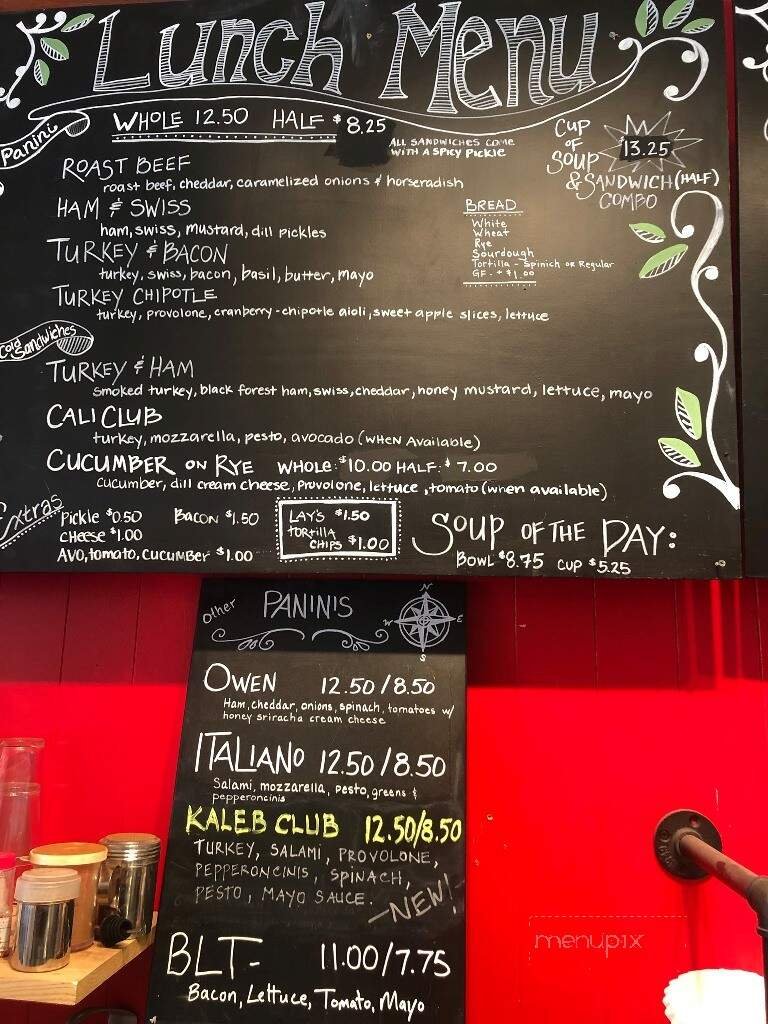 Lunch Menu
Panini
WHOLE 12.50 HALF $8.25
ALL SANDWICHES COME
WITH A SPICY PICKLE
CUP
OF
SOUP
& SANDWICH (HALF)
COMBO
13.25
ROAST BEEF
roast beef, cheddar, caramelized onions & horseradish
HAM & SWISS
ham, swiss, mustard, dill pickles
TURKEY & BACON
turkey, swiss, bacon, basil, butter, mayo
TURKEY CHIPOTLE
turkey, provolone, cranberry-chipotle aioli, sweet apple slices, lettuce
BREAD
White
Wheat
Rye
Sourdough
Tortilla - Spinich or Regular
GF - + $1.00
Cold Sandwiches
TURKEY & HAM
smoked turkey, black forest ham, swiss, cheddar, honey mustard, lettuce, mayo
CALI CLUB
turkey, mozzarella, pesto, avocado (WHEN Available)
CUCUMBER ON RYE WHOLE: $10.00 HALF: $7.00
cucumber, dill cream cheese, provolone, lettuce, tomato (when available)
Extras
Pickle $0.50 BACON $1.50
CHEESE $1.00
AVO, tomato, CUCUMBER $1.00
LAY'S $1.50
TORTILLA
CHIPS $1.00
SOUP OF THE DAY:
BOWL $8.75 CUP $5.25
other PANINIS
N
W E
S
OWEN 12.50/8.50
Ham, cheddar, onions, spinach, tomatoes w/
honey sriracha cream cheese
ITALIANO 12.50/8.50
Salami, mozzarella, pesto, greens &
pepperoncinis
KALEB CLUB 12.50/8.50
TURKEY, SALAMI, PROVOLONE,
PEPPERONCINIS, SPINACH,
PESTO, MAYO SAUCE.
-NEW!-
BLT- 11.00/7.75
Bacon, Lettuce, Tomato, Mayo
menupix